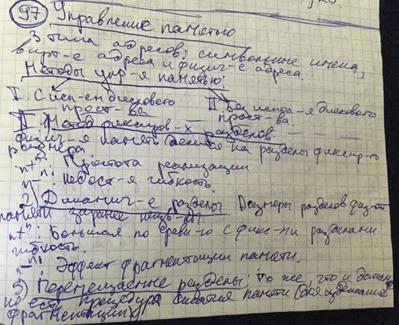 97 Управление памятью
3 типа адресов: символьные имена,
вирт-е адреса и физич-е адреса
Методы упр-я памятью:
I. С исп-ем дискового II Без испол-я дискового
прост-ва прост-ва
1) Метод фиксиров-х разделов
физич-я память делится на разделы фиксир-го
размера
"+": Простота реализации
"-": недост-я гибкость.
2) Динамич-е разделы Размеры разделов физ-й
памяти заранее
"+": Большая по сравн-ю с фикс-ми разделами
гибкость.
"-": Эффект фрагментации памяти.
3) Перемещаемые разделы: То же, что и динам,
но есть процедура сжатия памяти (для
фрагментации)